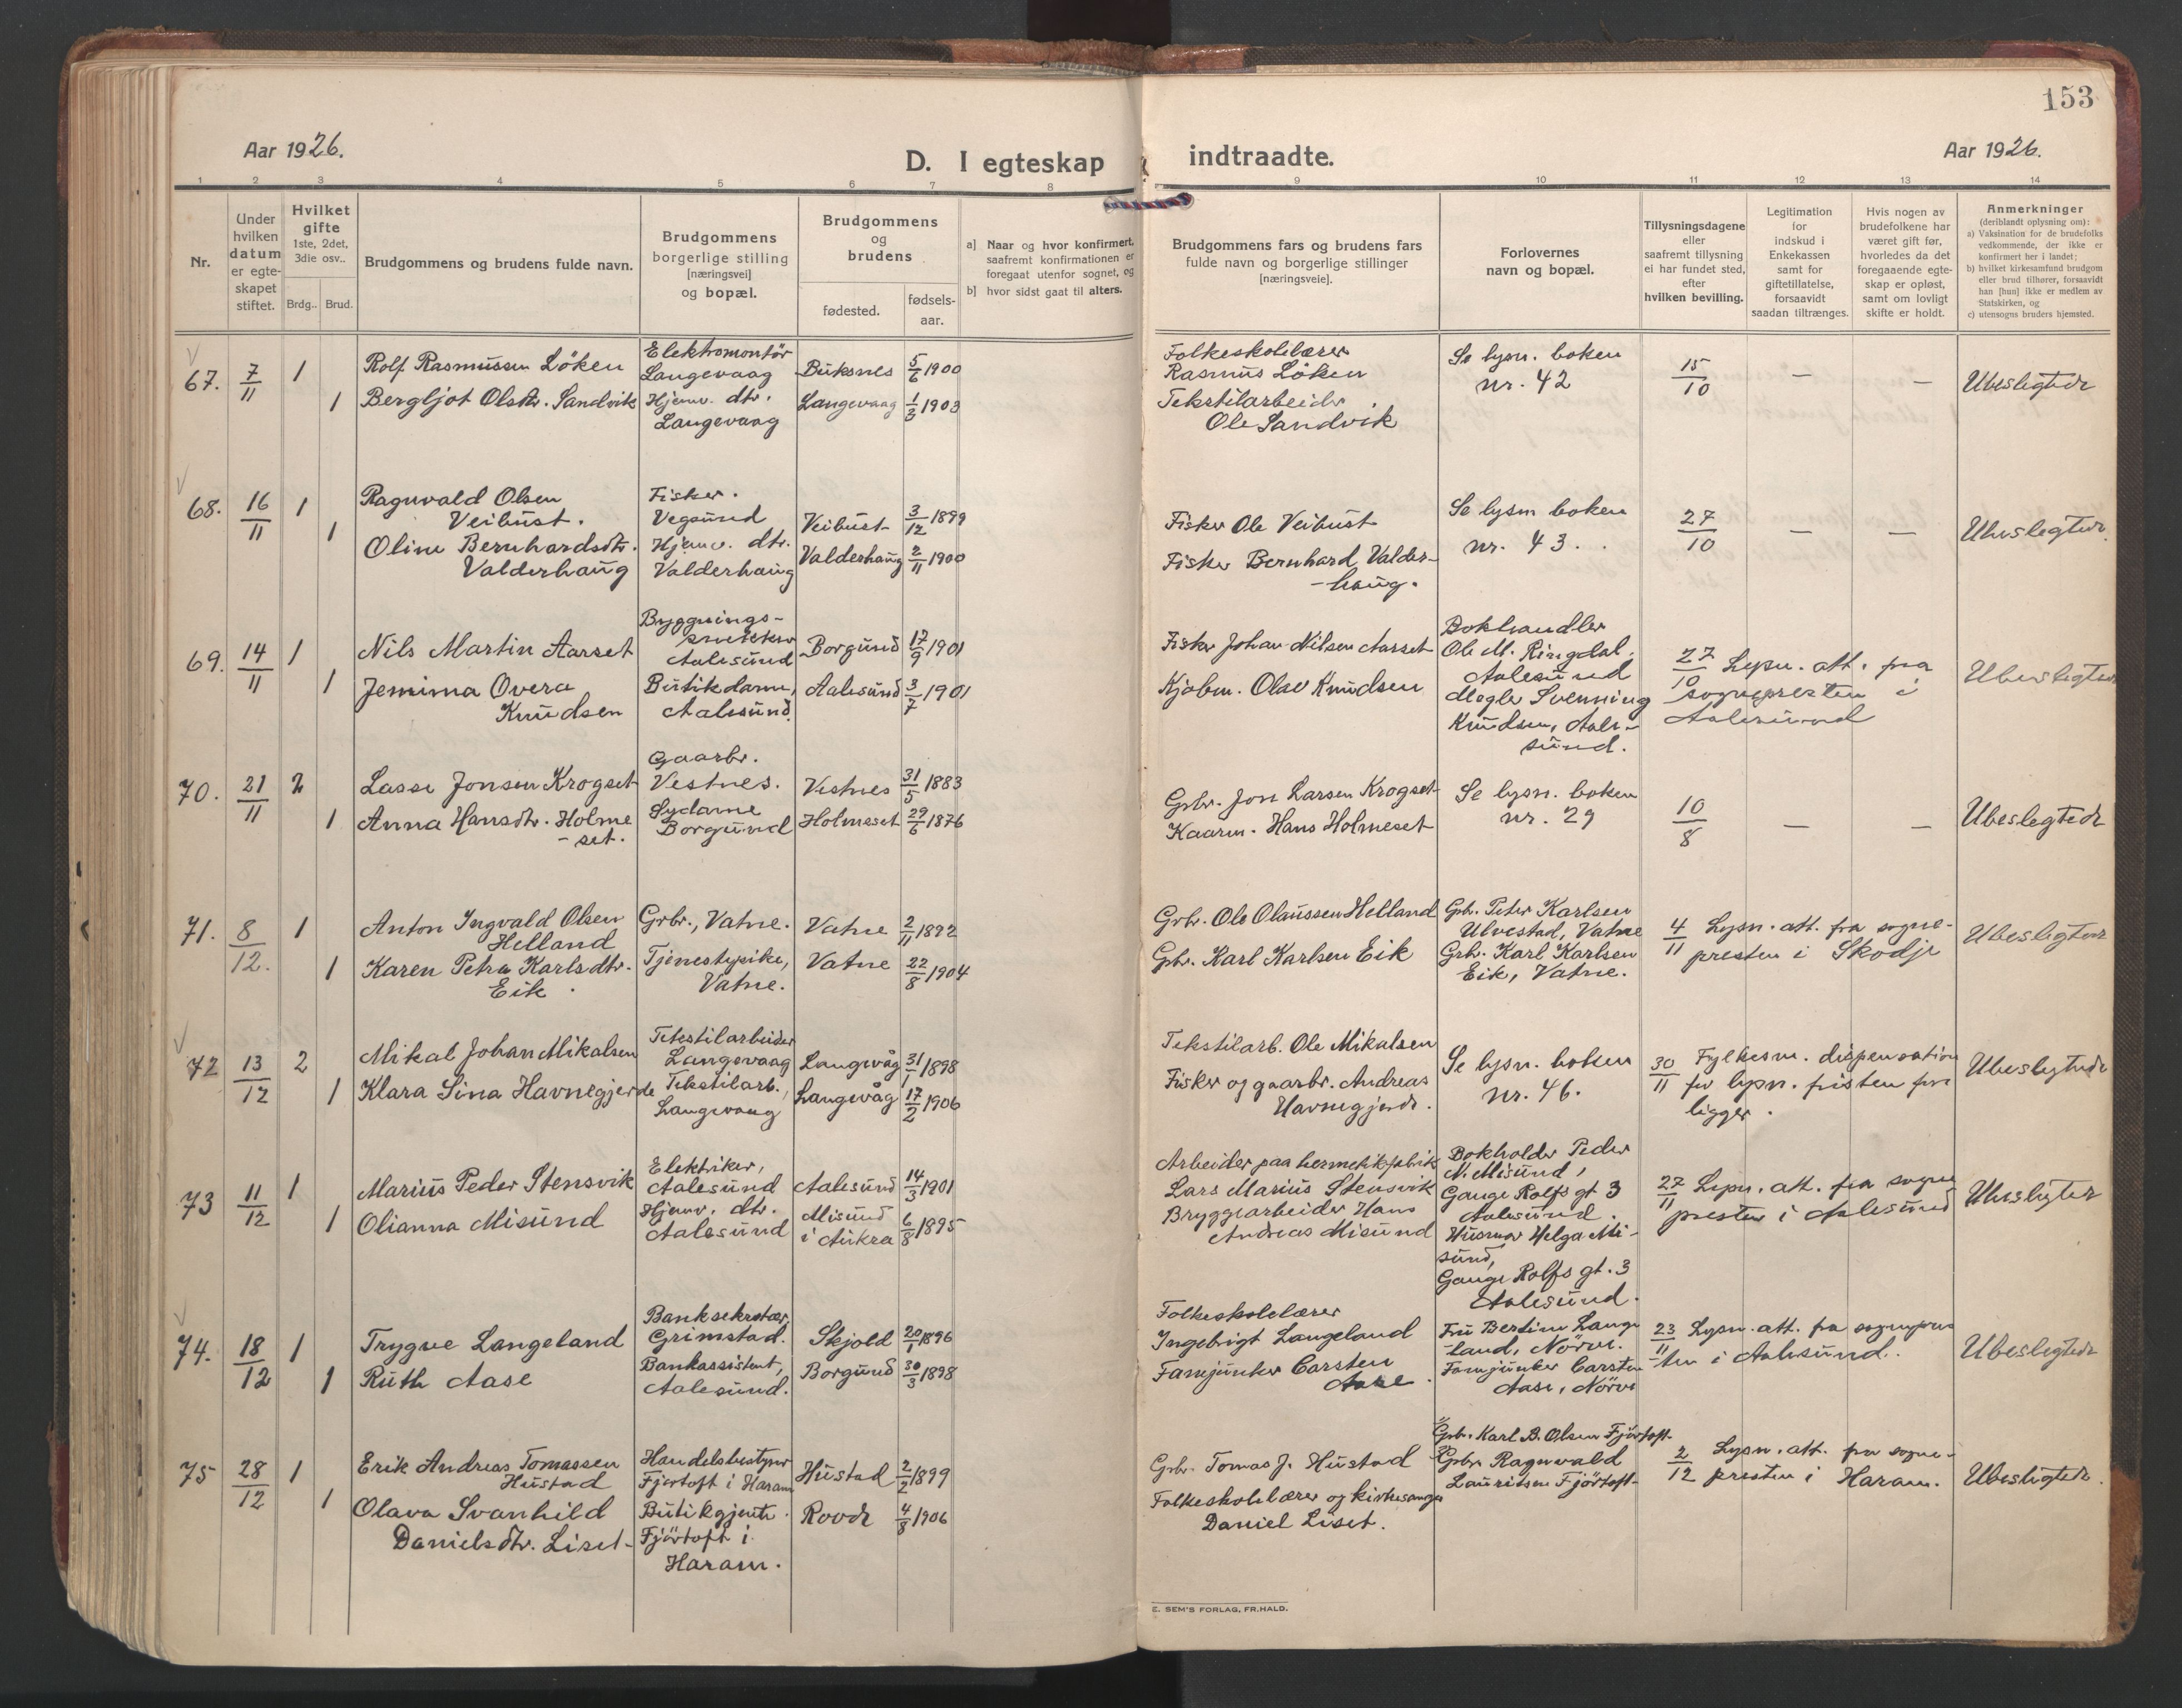 153
Aar 1926.
D. I egteskap indtraadte.
Aar 1926.
1 2 3 4 5 6 7 8 9 10 11 12 13 14
Nr.
Under
hvilken
datum
er egte-
skapet
stiftet.
Hvilket
gifte
1ste, 2det,
3die osv..
Brdg.. Brud.
Brudgommens og brudens fulde navn.
Brudgommens
borgerlige stilling
[næringsvei]
og bopæl.
Brudgommens
og
brudens
fødested.
fødsels-
aar.
a] Naar og hvor konfirmert,
saafremt konfirmationen er
foregaat utenfor sognet, og
b] hvor sidst gaat til alters.
Brudgommens fars og brudens fars
fulde navn og borgerlige stillinger
[næringsveie].
Forlovernes
navn og bopæl.
Tillysningsdagene
eller
saafremt tillysning
ei har fundet sted,
efter
hvilken bevilling.
Legitimation
for
indskud i
Enkekassen
samt for
giftetillatelse,
forsaavidt
saadan tiltrænges.
Hvis nogen av
brudefolkene har
været gift før,
hvorledes da det
foregaaende egte-
skap er opløst,
samt om lovligt
skifte er holdt.
Anmerkninger
(deriblandt oplysning om):
a) Vaksination for de brudefolks
vedkommende, der ikke er
konfirmert her i landet;
b) hvilket kirkesamfund brudgom
eller brud tilhører, forsaavidt
han [hun] ikke er medlem av
Statskirken, og
c) utensogns bruders hjemsted.
67. 7/11 1 Rolf Rasmussen Löken
Elektromontör
Langevaag
Buksnes 5/6 1900
1 Bergljot Olsdtr. Sandvik
Hjemv. dtr.
Langevaag
Langevaag 1/3 1903
Folkeskolelærer
Rasmus Löken
Tekstilarbeider
Ole Sandvik
Se lysn. boken
nr. 42
15/10
—
—
Ubeslegtede
68. 16/11 1 Ragnvald Olsen
Veibust.
Fisker.
Vegsund
Veibust 3/12 1899
1 Oline Bernhardsdtr.
Valderhaug
Hjemv. dtr.
Valderhaug
Valderhaug 2/11 1900
Fisker Ole Veibust
Fisker Bernhard Valder-
-haug.
Se lysn boken
nr. 43.
27/10
—
—
Ubeslegtede.
69. 14/11 1 Nils Martin Aarset
Bygnings-
snekker
Aalesund
Borgund 17/9 1901
1 Jemima Overa
Knudsen
Butikdame,
Aalesund.
Aalesund 3/7 1901
Fisker Johan Nilsen Aarset
Kjøbm. Olav Knudsen
Bokhandler
Ole M. Ringdal.
Aalesund
Megler Svenning
Knudsen, Aale-
sund.
27/10 Lysn. att. fra
sognepresten i
Aalesund
Ubeslegtede
70. 21/11 2 Lasse Jonsen Krogset
Gaarbr.
Vestnes.
Vestnes 31/5 1883
1 Anna Hansdtr. Holme
-set.
Sydame
Borgund
Holmeset 29/6 1876
Grbr. Jon Larsen Krogset
Kaarm. Hans Holmeset
Se lysn. boken
nr. 29
10/8
—
—
Ubeslegtede
71. 8/12. 1 Anton Ingvald Olsen
Helland
Grbr., Vatne.
Vatne 2/11 1892
1 Karen Petra Karlsdtr.
Eik
Tjenestepike,
Vatne.
Vatne 22/8 1904
Grbr. Ole Olaussen Helland
Gbr. Karl Karlsen Eik
Grb. Peter Karlsen
Ulvestad, Vatne
Grb. Karl Karlsen
Eik, Vatne.
4/11 Lysn. att. fra sogne-
presten i Skodje
Ubeslegtede
72 13/12 2 Mikal Johan Mikalsen
Tekstilarbeider
Langevaag
Langevåg 31/1 1898
1 Klara Sina Havnegjerde
Tekstilarb.,
Langevaag
Langevåg 17/2 1906
Tekstilarb. Ole Mikalsen
Fisker og gaarbr. Andreas
Havnegjerde.
Se lysn. boken
nr. 46.
30/11 Fylkesm. dispensation
for lysn. fristen fore
ligger.
Ubeslegtede
73 11/12 1 Marius Peder Stensvik
Elektriker,
Aalesund
Aalesund 14/3 1901
1 Olianna Misund
Hjemv. dtr.
Aalesund
Misund
i Aukra 6/8 1895
Arbeider paa hermetikfabrik
Lars Marius Stensvik
Bryggearbeider Hans
Andreas Misund
Bokholder Peder
N. Misund,
Gange Rolfs gt 3
Aalesund.
Husmor Helga Mi-
sund,
Gange Rolfs gt. 3
Aalesund.
27/11 Lysn. att. fra sogne
presten i Aalesund
Ubeslegtede
74. 18/12 1 Trygve Langeland
Banksekretær,
Grimstad.
Skjold 20/1 1896
1 Ruth Aase
Bankassistent,
Aalesund.
Borgund 30/3 1898
Folkeskolelærer
Ingebrigt Langeland
Fanejunker Carsten
Aase.
Fru Bertine Lange
-land, Nörve.
Fanejunker Carsten
Aase, Nörve
23/11 Lysn. att. fra sognepres
-ten i Aalesund.
Ubeslegtede
75 28/12 1 Erik Andreas Tomassen
Hustad
Handelsbestyrer
Fjørtoft i Haram
Hustad 2/2 1899
1 Olava Svanhild
Danielsdtr. Liset
Butikgjente.
Fjörtoft i
Haram.
Rovde 4/8 1906
Grbr. Tomas J. Hustad
Folkeskolelærer og kirkesanger
Daniel Liset.
Grb. Karl B. Olsen Fjörtoft.
Grbr. Ragnvald
Lauritsen Fjörtoft
2/12 Lysn. att. fra sogne-
presten i Haram.
Ubeslegtede.
E. SEM'S FORLAG, FR.HALD.